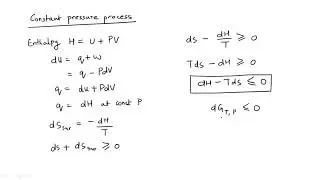 Constant pressure process
Enthalpy H = U + PV
dU = q + w
= q - PdV
q = dU + PdV
q = dH at const P
dS_sur = - dH/T
ds + dS_sur ≥ 0
ds - dH/T ≥ 0
Tds - dH ≥ 0
dH - Tds ≤ 0
dG_T,P ≤ 0